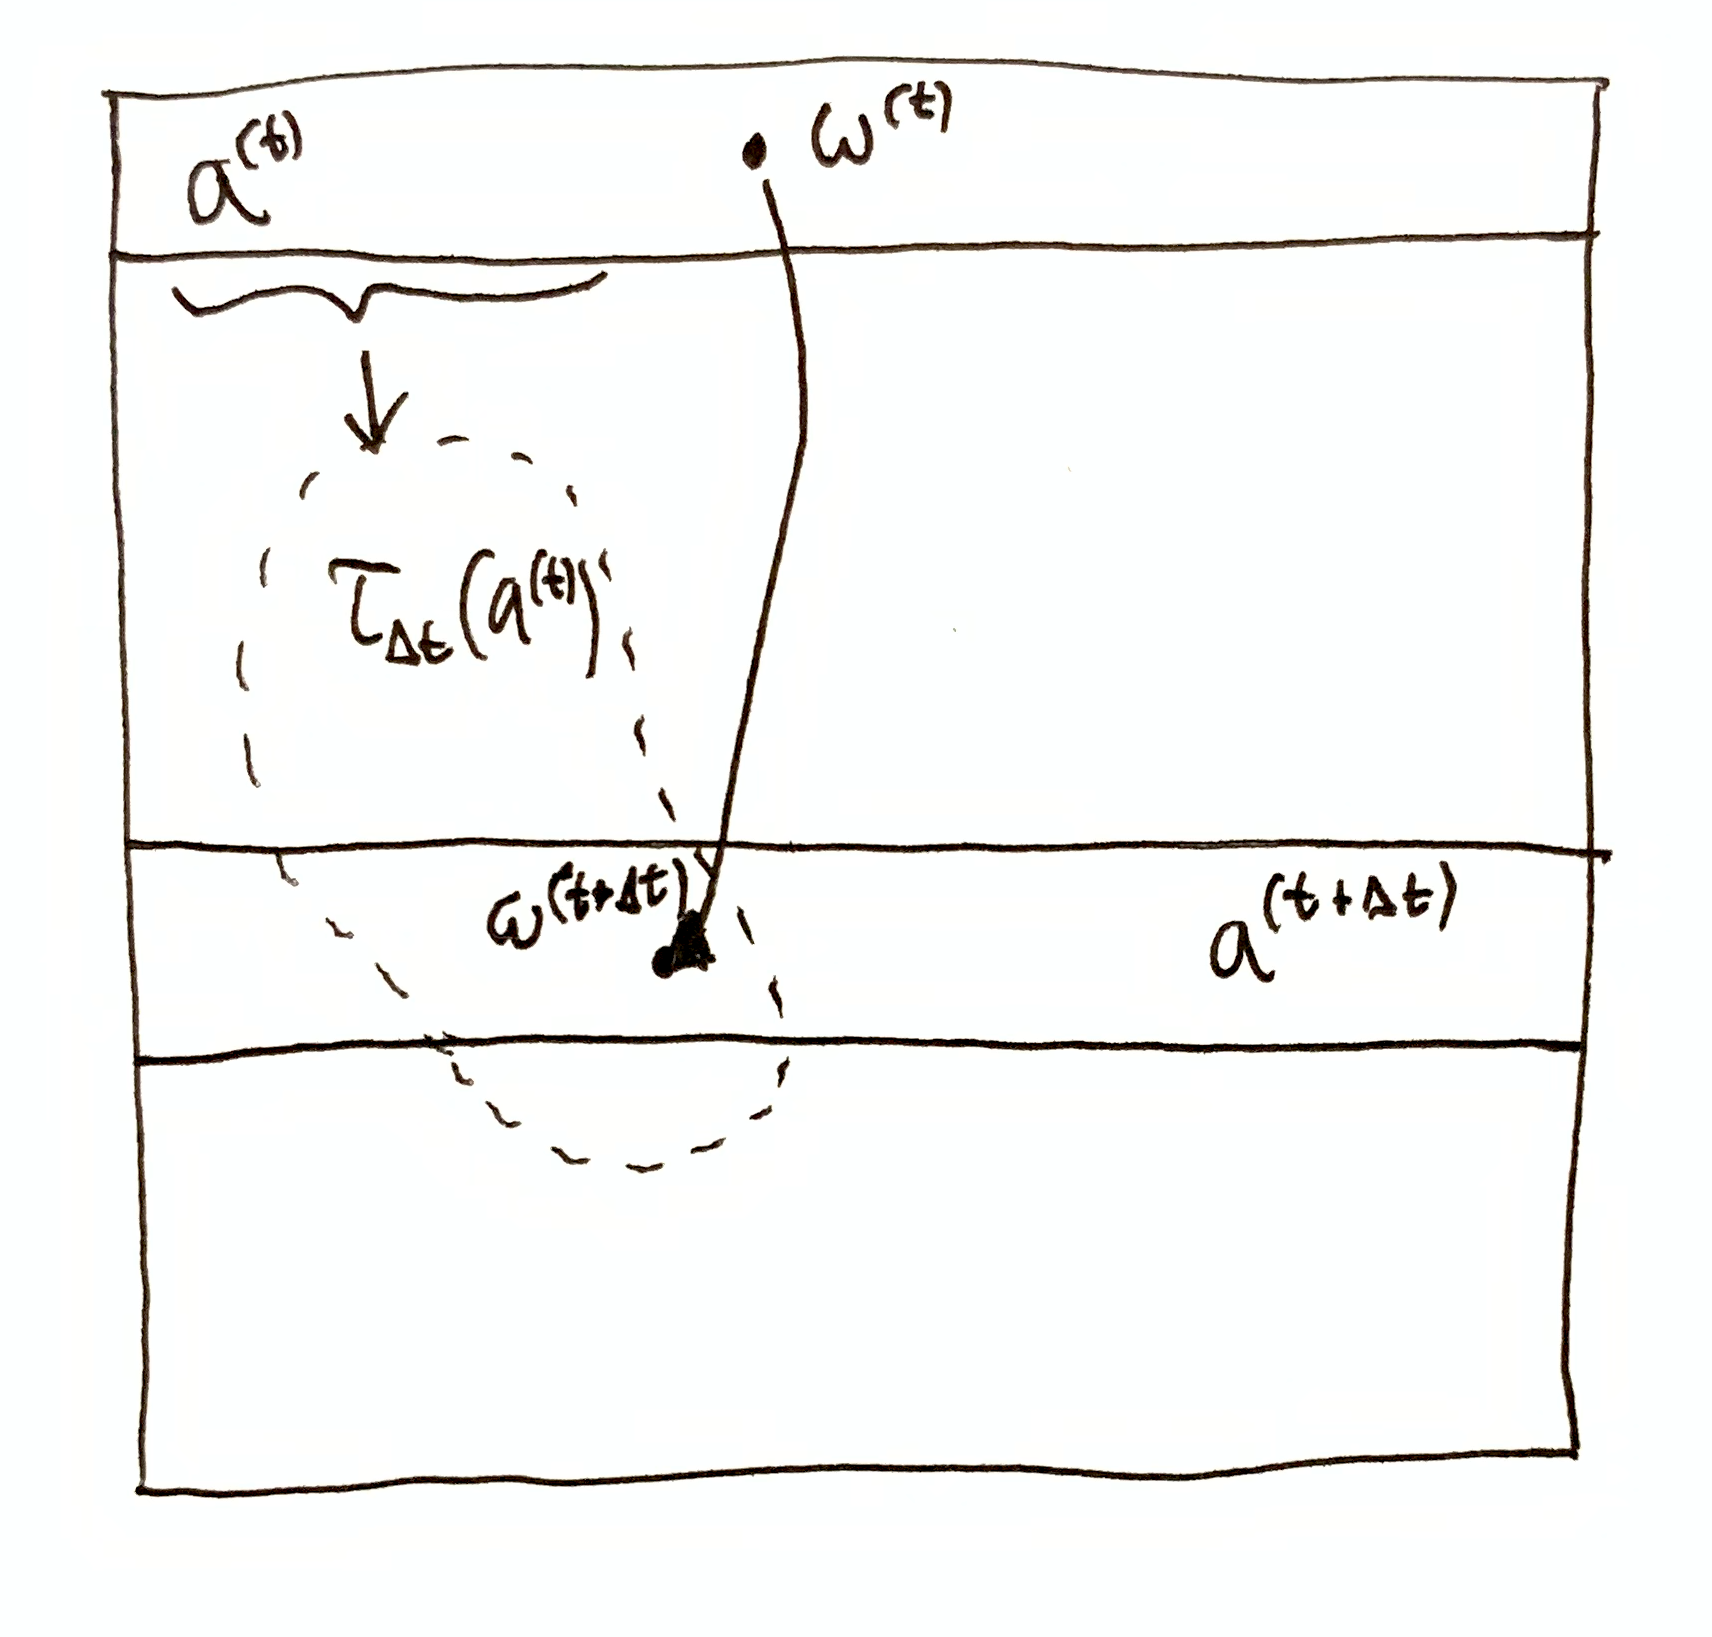 a^(t) ω^(t)
τ_Δt(a^(t))
ω^(t+Δt) a^(t+Δt)